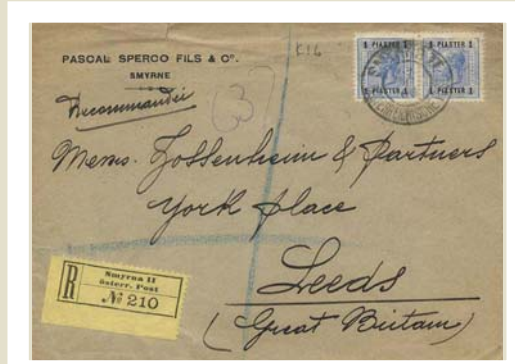 PASCAL SPERCO FILS & Cº.
SMYRNE
Recommandée
K16
637
1 PIASTER 1 1 PIASTER 1
1 PIASTER 1 1 PIASTER 1
Messrs. Zossenheim & Partners
York place
Leeds
(Great Britain)
R
Smyrna II
österr. Post
№ 210